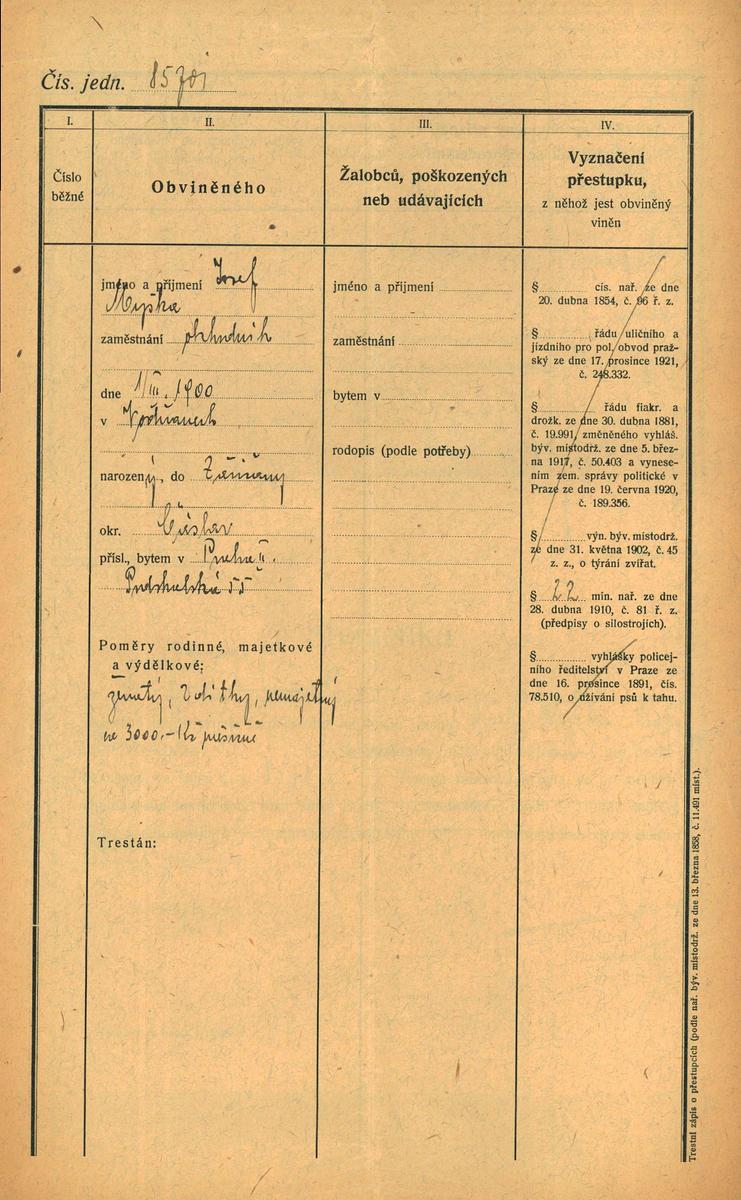 Čís. jedn.
I.
II.
III.
IV.
Číslo
běžné
Obviněného
Žalobců, poškozených
neb udávajících
Vyznačení
přestupku,
z něhož jest obviněný
viněn
jméno a přijmení Josef
Myška
zaměstnání obchodník
dne 1/III. 1900
v
narozený, do
okr. Čáslav
přísl., bytem v Praha II.
Podskalská 55
Poměry rodinné, majetkové
a výdělkové:
ženatý, 2 děti, nemajetný
3000.- Kč měsíčně
Trestán:
jméno a přijmení
zaměstnání
bytem v
rodopis (podle potřeby)
§ cís. nař. ze dne
20. dubna 1854, č. 96 ř. z.
§ řádu uličního a
jízdního pro pol. obvod praž-
ský ze dne 17. prosince 1921,
č. 248.332.
§ řádu fiakr. a
drožk. ze dne 30. dubna 1881,
č. 19.991, změněného vyhláš.
býv. místodrž. ze dne 5. břez-
na 1917, č. 50.403 a vynese-
ním zem. správy politické v
Praze ze dne 19. června 1920,
č. 189.356.
§ výn. býv. místodrž.
ze dne 31. května 1902, č. 45
z. z., o týrání zvířat.
§ 22 min. nař. ze dne
28. dubna 1910, č. 81 ř. z.
(předpisy o silostrojích).
§ vyhlášky policej-
ního ředitelství v Praze ze
dne 16. prosince 1891, čís.
78.510, o užívání psů k tahu.
Trestní zápis o přestupcích (podle nař. býv. místodrž. ze dne 13. března 1858, č. 11.491 míst.).